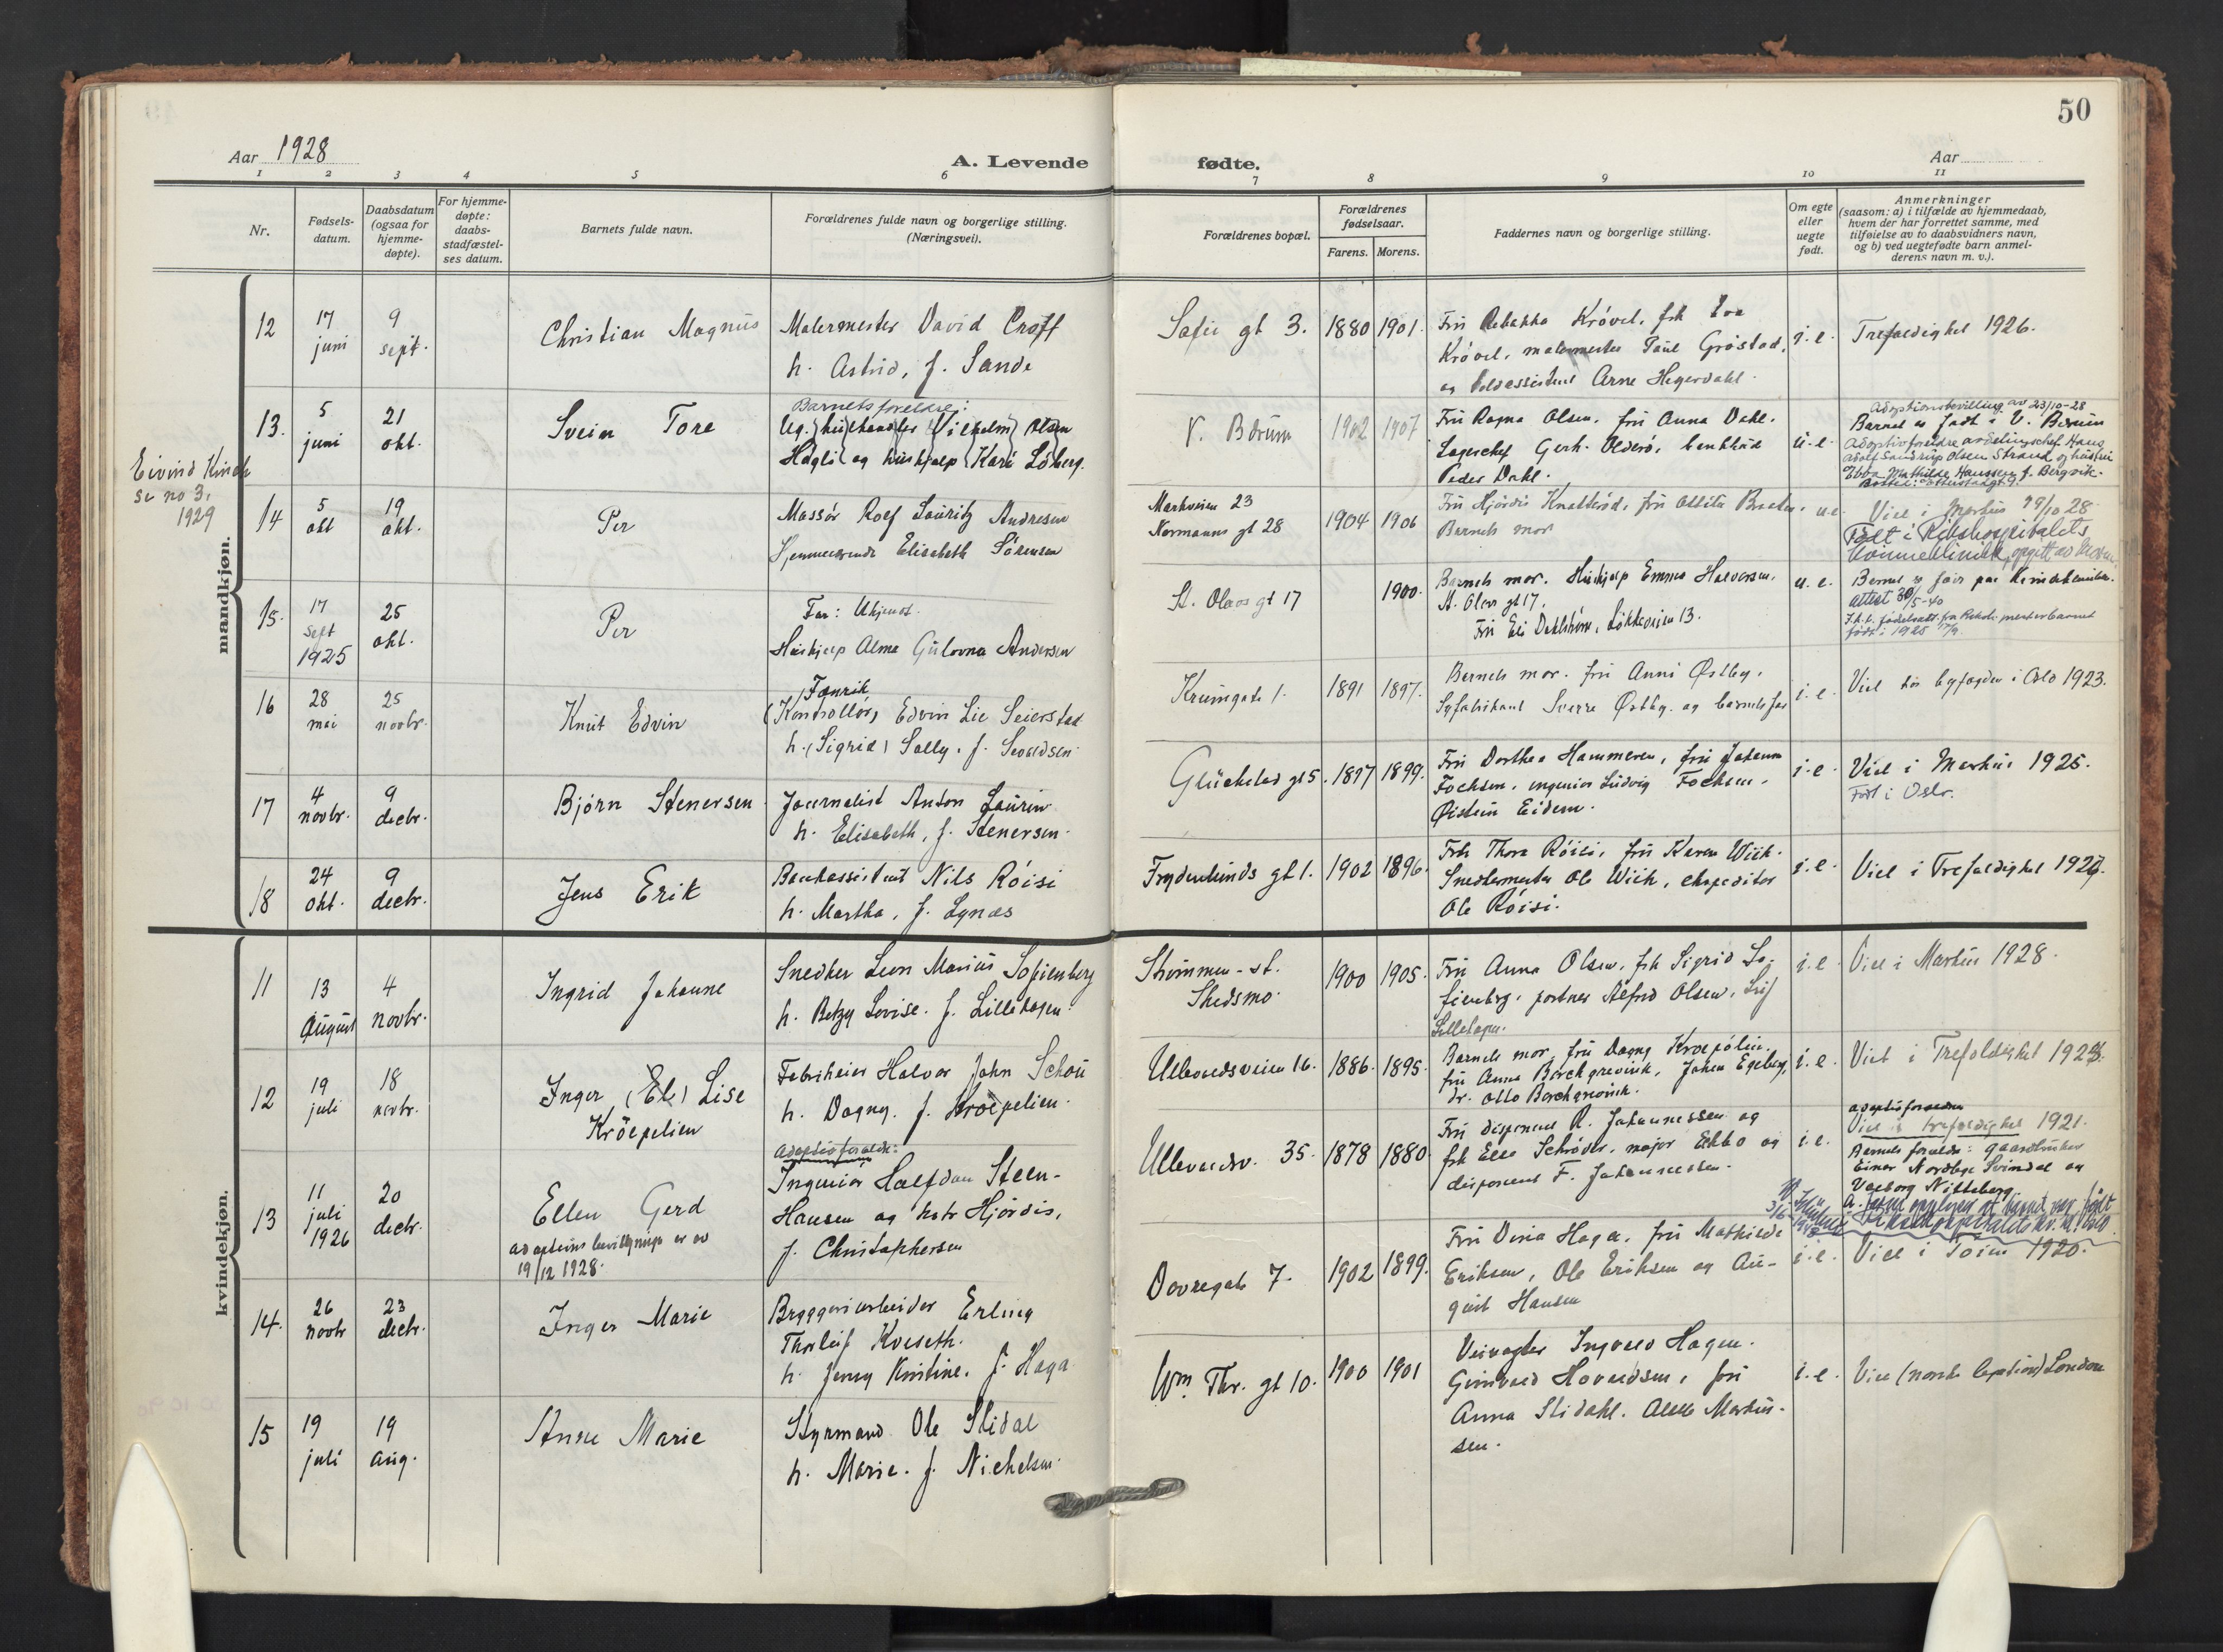 50
Aar 1928
A. Levende
fødte.
Aar
1 2 3 4 5 6 7 8 9 10 11
Nr.
Fødsels-
datum.
Daabsdatum
(ogsaa for
hjemme-
døpte).
For hjemme-
døpte:
daabs-
stadfæstel-
ses datum.
Barnets fulde navn.
Forældrenes fulde navn og borgerlige stilling.
(Næringsvei).
Forældrenes bopæl.
Forældrenes
fødselsaar.
Farens. Morens.
Faddernes navn og borgerlige stilling.
Om egte
eller
uegte
født.
Anmerkninger
(saasom: a) i tilfælde av hjemmedaab,
hvem der har forrettet samme, med
tilføielse av to daabsvidners navn,
og b) ved uegtefødte barn anmel-
derens navn m. v.).
mandkjøn.
12
17
juni
9
sept.
Christian Magnus
Malermester David
h. Astrid, f. Sande
Sofie gt 3.
1880 1901.
Fru Rebekka Krøvel, frk
Krøvel, malermester Paul Grøstad,
og Arne Hegerdahl.
i. e.
Trefoldighet 1926.
13.
5
juni
21
okt.
Svein Tore
Barnets foreldre:
Vilhelm Olsen
og hushjælp Kari Løberg.
V. Bærum
1902 1907
Fru Ragna Olsen, fru Anna Dahl.
Lagerchef Gerh.
Peder Dahl.
u. e.
Adoptionsbevilling av 23/10-28
Barnet er født i V. Bærum
Adoptivforeldre avdelingschef Hans
Adolf Sandrup Olsen Strand og hustru
Ebba Mathilde Hanssen f. Bergvik.
Eivind
se no 3,
1929
14
5
okt
19
okt.
Per
Massør Rolf Lauritz Andresen
Hjemmeværende Elisabeth Sørensen
Markveien 23
Normanns gt 28
1904 1906
Fru Hjørdis Knatterød, fru
Barnets mor
u. e.
Viet i Markus 19/10 28
Født i Rikshospitalets
Kvinneklinikk, opgitt av
15.
17
sept
1925
25
okt.
Per
Far: Ukjendt.
Hushjelp Alma Gulovna Andersen
St. Olavs gt 17
1900.
Barnets mor. Hushjelp Emma Halvorsen,
St. Olavs gt 17.
Fru Eli Dahlstrøm, Løkkeveien 13.
u. e.
Barnet er født paa Kvindeklinikken.
attest 30/5-40
født i 1925
16
28
mai
25
novbr.
Knut Edvin
Fenrik
(Kontrollør) Edvin Lie Seierstad
h. (Sigrid) Solly. f. Sivertsen.
Krumgate 1.
1891 1897.
Barnets mor. fru Anni Østby,
Syfabrikant Sverre Østby. og barnets far
i. e.
Viet hos byfogden i Oslo 1923.
17
4
novbr.
9
decbr.
Bjørn Stenersen
Journalist Anton Laurin
h. Elisabeth, f. Stenersen.
Glückstad gt 5.
1897 1899.
Fru Dorthea Hammeren, fru Johanna
Fochsen, ingeniør Ludvig Fochsen.
Øistein Eidem.
i. e.
Viet i Markus 1925.
Født i Oslo.
18
24
okt.
9
decbr.
Jens Erik
Bankassistent Nils Røisi
h. Martha, f. Lynæs
Frydenlunds gt 1.
1902 1896.
Frk Thora Røisi, fru Karen Wiik.
Snedkermester Ole Wiik, ekspeditør
Ole Røisi.
i. e.
Viet i Trefoldighet 1927.
kvindekjøn.
11
13
August
4
novbr.
Ingrid Johanne
Snedker Leon Marius Sofienberg
h. Betzy Lovise. f. Lillehagen.
Strømmen-st.
Skedsmo.
1900 1905.
Fru Anna Olsen, frk Sigrid So-
fienberg, portner Alfred Olsen, Leif
Lillehagen.
i. e.
Viet i Markus 1928.
12
19
juli
18
novbr.
Inger (El) Lise
Krøepelien
Fabrikeier Halvor John Schou
h. Dagny. f. Krøepelien.
Ullevoldsveien 16.
1886. 1895.
Barnets mor, fru Dagny Kroepelien.
fru Anna Borchgrevink, Johan Egeberg,
dr. Otto Borchgrevink.
i. e.
Viet i Trefoldighet 1928.
13
11
juli
1926
20
decbr.
Ellen Gerd
adoptions bevillgning er av
19/12 1928.
Adoptivforældre:
Ingeniør Halfdan Steen-
Hansen og hstr Hjørdis,
f. Christophersen
Ullevoldsv. 35.
1878 1880
Fru disponent R. Johannessen og
frk Ella Schrøder, major Ebbo og
disponent F. Johannessen.
i. e.
adoptivforældre
Viet i trefoldighet 1921.
Barnets forældre: gaardbruker
Einar Nordbye Svindal og
Valborg Nitteberg
14.
26
novbr
23
decbr.
Inger Marie
Bryggeriarbeider Erling
Thorleif Kveseth.
h. Jenny Kristine. f. Haga
Dovregate 7.
1902 1899.
Fru Dina Haga, fru Mathilde
Eriksen, Ole Eriksen og Au-
gust Hansen
i. e.
Viet i Tøien 1920.
15
19
juli
19
aug.
Anne Marie
Styrmand Ole Slidal
h. Marie. f. Nichelsen.
Wm. Thr. gt 10.
1900 1901
Veivogter Ingvald Hagen.
fru
Anna Slidahl. Martin-
sen.
i. e.
Viet (norske legation) London